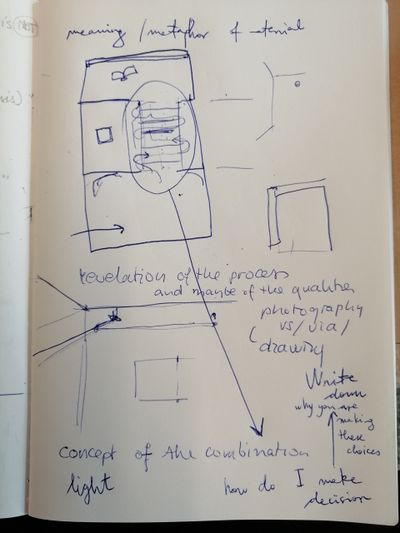 meaning / metaphor of material
revelation of the process
and maybe of the qualities
photography
vs / via /
drawing
Write
down
why you are
making
these
choices
concept of the combination
light
how do I make
decision